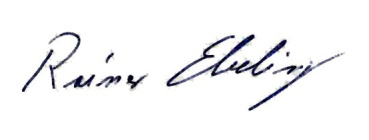 Rainer Ebeling